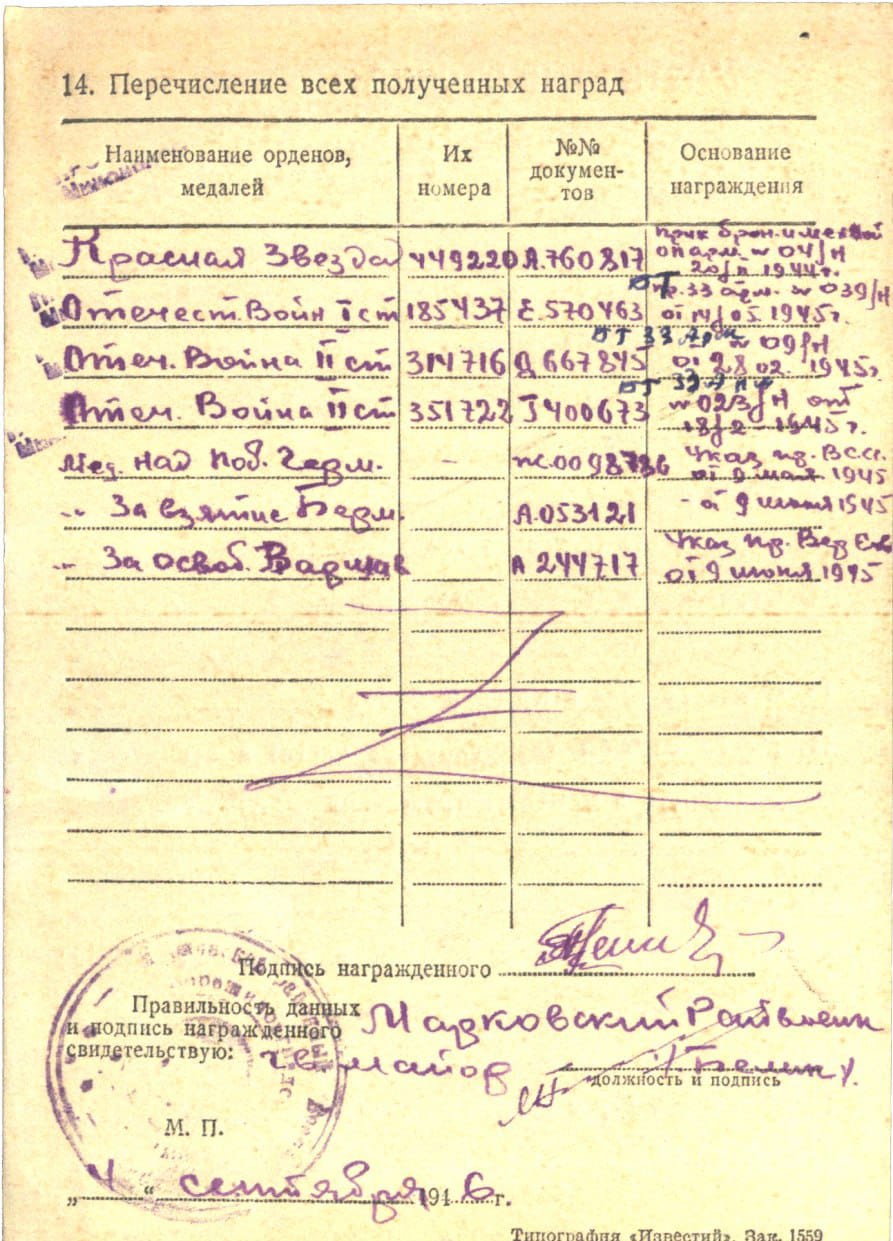 14. Перечисление всех полученных наград
Наименование орденов, медалей
Их номера
№№ докумен-тов
Основание награждения
Красная Звезда 449220 А.760817 прик брон. и мех вой
опарм № 04/н
20/п 1944г.
Отечест. Войн I ст 185437 Е.570463 пр. 33 арм. № 039/н
от 14/05. 1945г.
Отеч. Война II ст 314716 Д 667845 № 09/н
от 28 02. 1945г.
Отеч. Война II ст 351722 400673 № 023/н от
18/2 - 1945г.
Мед. Над Поб. Герм. - Ж.0098736 Указ пр. В.С.С.
от 9 мая 1945
" За взятие Берл. А.053121 - от 9 июня 1945
" За освоб. Варшав А 244717 Указ пр. Вер
от 9 июня 1945
Подпись награжденного
Правильность данных
и подпись награжденного
свидетельствую:
майор
должность и подпись
М. П.
„4“ сентября 1946 г.
Типография «Известий». Зак. 1559